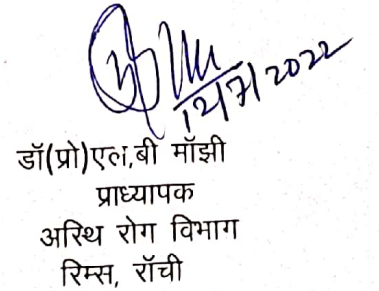 12/7/2022
डॉ(प्रो)एल,बी माँझी
प्राध्यापक
अस्थि रोग विभाग
रिम्स, राँची